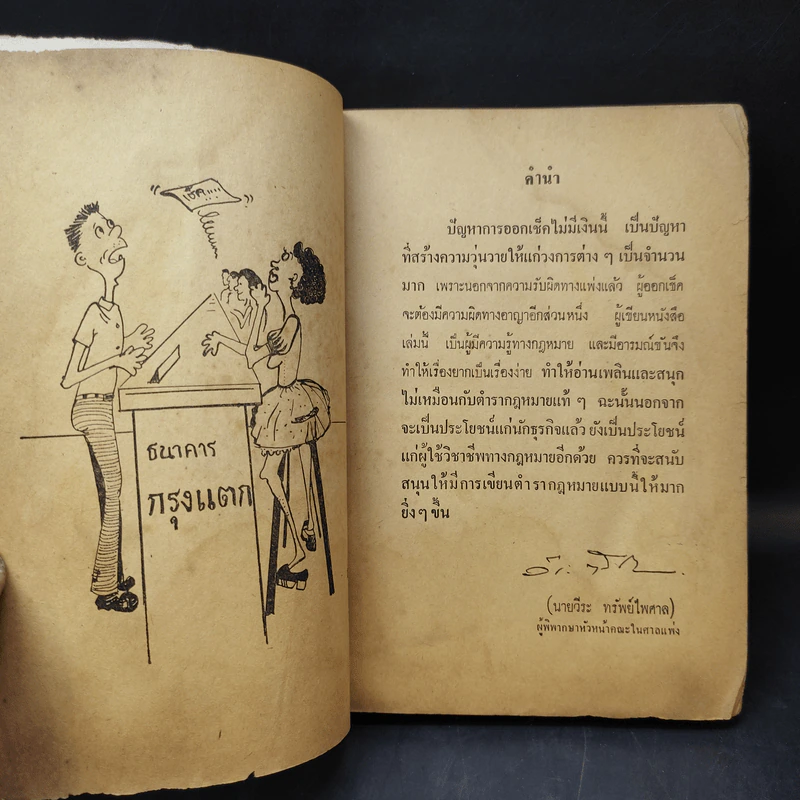 เช็ค!!!!
ธนาคาร
กรุงแตก
คำนำ
ปัญหาการออกเช็คไม่มีเงินนี้ เป็นปัญหา
ที่สร้างความวุ่นวายให้แก่วงการต่าง ๆ เป็นจำนวน
มาก เพราะนอกจากความรับผิดทางแพ่งแล้ว ผู้ออกเช็ค
จะต้องมีความผิดทางอาญาอีกส่วนหนึ่ง ผู้เขียนหนังสือ
เล่มนี้ เป็นผู้มีความรู้ทางกฎหมาย และมีอารมณ์ขันจึง
ทำให้เรื่องยากเป็นเรื่องง่าย ทำให้อ่านเพลินและสนุก
ไม่เหมือนกับตำรากฎหมายแท้ ๆ ฉะนั้นนอกจาก
จะเป็นประโยชน์แก่นักธุรกิจแล้ว ยังเป็นประโยชน์
แก่ผู้ใช้วิชาชีพทางกฎหมายอีกด้วย ควรที่จะสนับ
สนุนให้มีการเขียนตำรากฎหมายแบบนี้ให้มาก
ยิ่ง ๆ ขึ้น
(นายวีระ ทรัพย์ไพศาล)
ผู้พิพากษาหัวหน้าคณะในศาลแพ่ง